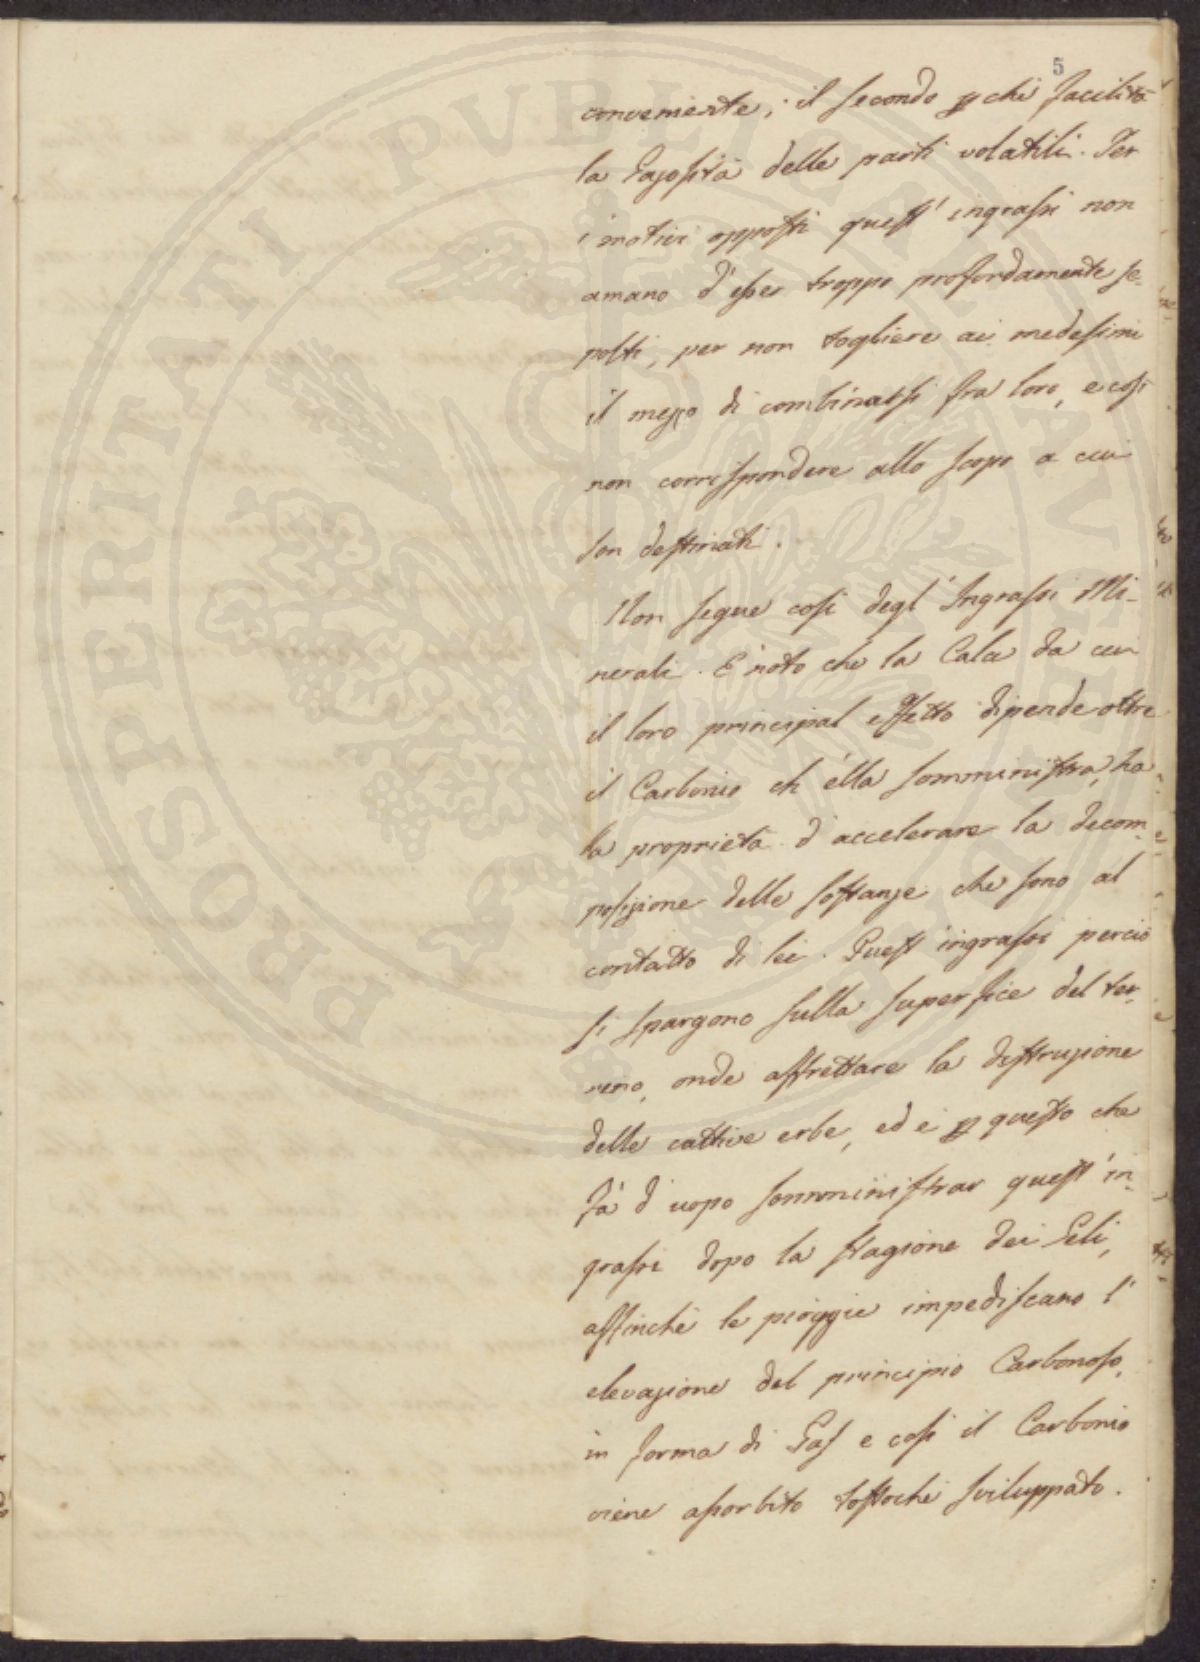 5
conveniente; il secondo p chi facilita
la Gasosità delle parti volatili. Per
i motivi opposti quest' ingrassi non
amano d'esser troppo profondamente se-
polti, per non togliere ai medesimi
il mezzo di combinarsi fra loro, e così
non corrispondere allo scopo a cui
son destinati.
Non segue così degl' Ingrassi Mi-
nerali. E' noto che la Calce da cui
il loro principal effetto dipende oltre
il Carbonio ch' ella somministra, ha
la proprietà d'accelerare la decom-
posizione delle sostanze che sono al
contatto di lei. Quest' ingrassi percio
si spargono sulla superfice del ter-
reno, onde affrettare la distruzione
delle cattive erbe, ed è p questo che
fà d'uopo somministrar quest' in-
grassi dopo la stagione dei Geli,
affinchè le pioggie impediscano l'
elevazione del principio Carbonoso,
in forma di Gas e così il Carbonio
viene assorbito tostochè sviluppato.
PROSPERITATI PVBLICAE AVGENDAE